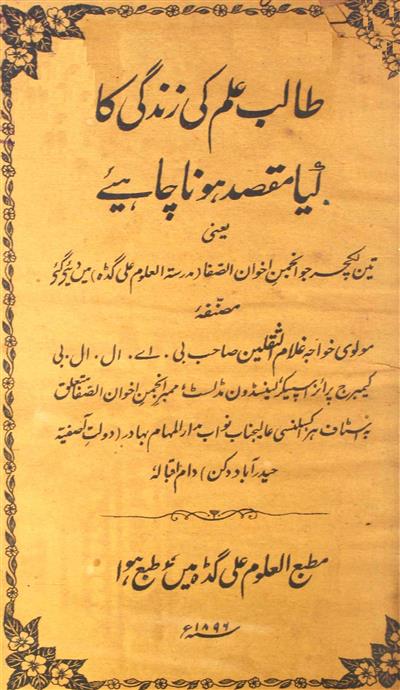 طالب علم کی زندگی کا
کیا مقصد ہونا چاہیئے
یعنی
تین لکچر جو انجمن اخوان الصفا (مدرسۃ العلوم علی گڈہ) میں دیئے گئے
مصنفہ
مولوی خواجہ غلام الثقلین صاحب بی۔ اے۔ ال۔ ال۔ بی
کیمبرج پرائز اسپیکر لینسڈون مڈلسٹ ممبر انجمن اخوان الصفا متعلق
بہ اسٹاف ہز اکسلنسی عالیجناب نواب مدار المہام بہادر (دولت آصفیہ
حیدرآباد دکن) دام اقبالہ
مطبع العلوم علی گڈہ میں طبع ہوا
سنہ ۱۸۹۶ء